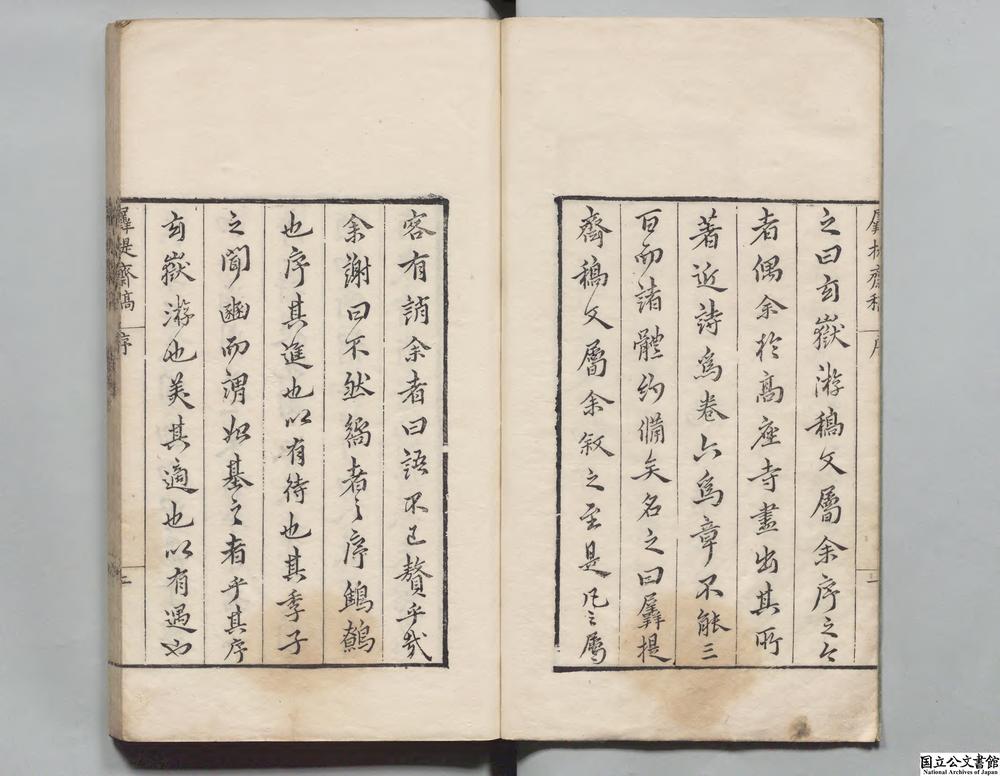 之曰玄嶽游稿又屬余序之今
者偶余於高座寺盡出其所
著近詩爲卷六爲章不能三
百而諸體約備矣名之曰羼提
齋稿又屬余叙之至是凡三屬
容有誚余者曰語不已贅乎哉
余謝曰不然鄉者之序鷦鷯
也序其進也以有待也其季子
之聞豳而謂始基之者乎其序
玄嶽游也美其適也以有遇也
羼提齋稿 序 二
国立公文書館
National Archives of Japan